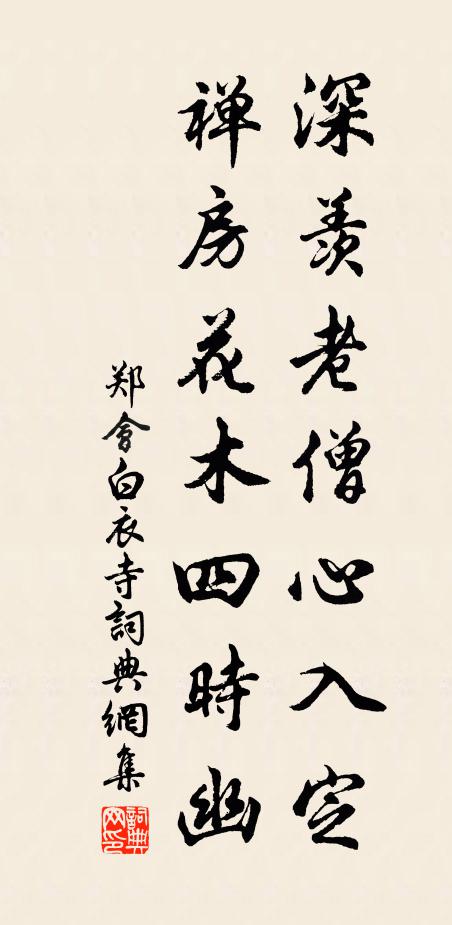 深羨老僧心入定
禅房花木四時幽
郑會白衣寺詞典網集
詞典網印